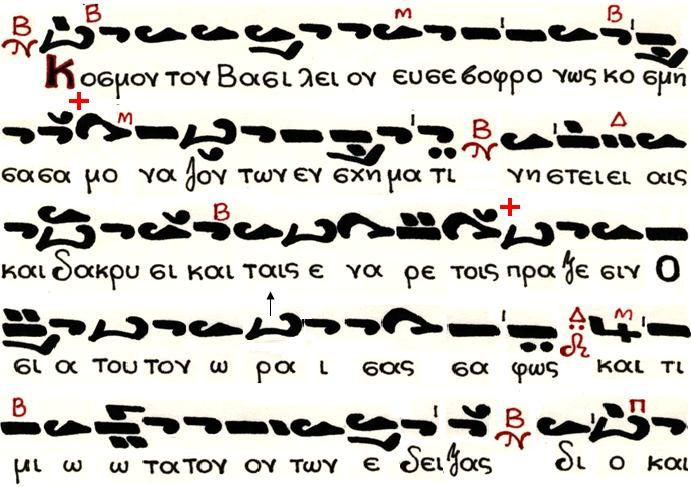 Κοσμον τον Βασι λει ον ευσεβοφρο νως κο σμη
σασα μο να ζον των εν σχη μα τι νη στειει αις
και δακρυ σι και ταις ε να ρε τοις πρα ξε σιν Ο
σι α του τον ω ρα ι σας σα φως και τι
μι ω ω τατον ον των ε δει ξας δι ο και